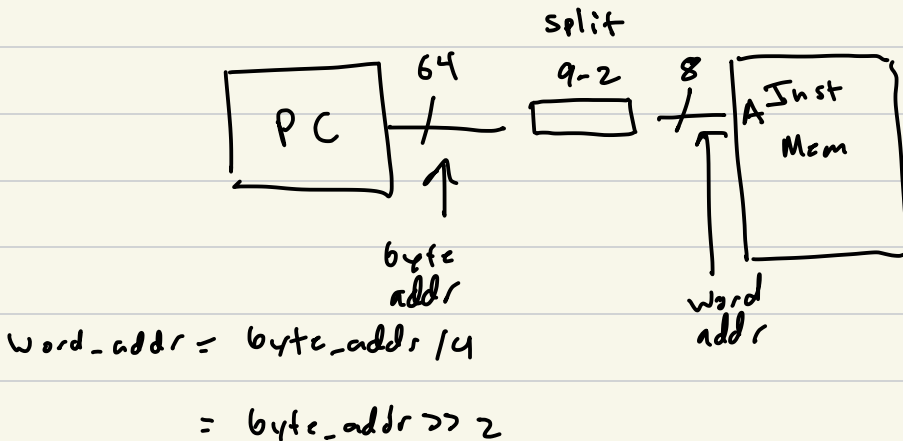 split
64
9-2
8
PC
A Inst
Mem
byte
addr
word
addr
word_addr = byte_adds /4
= byte_addr >> 2